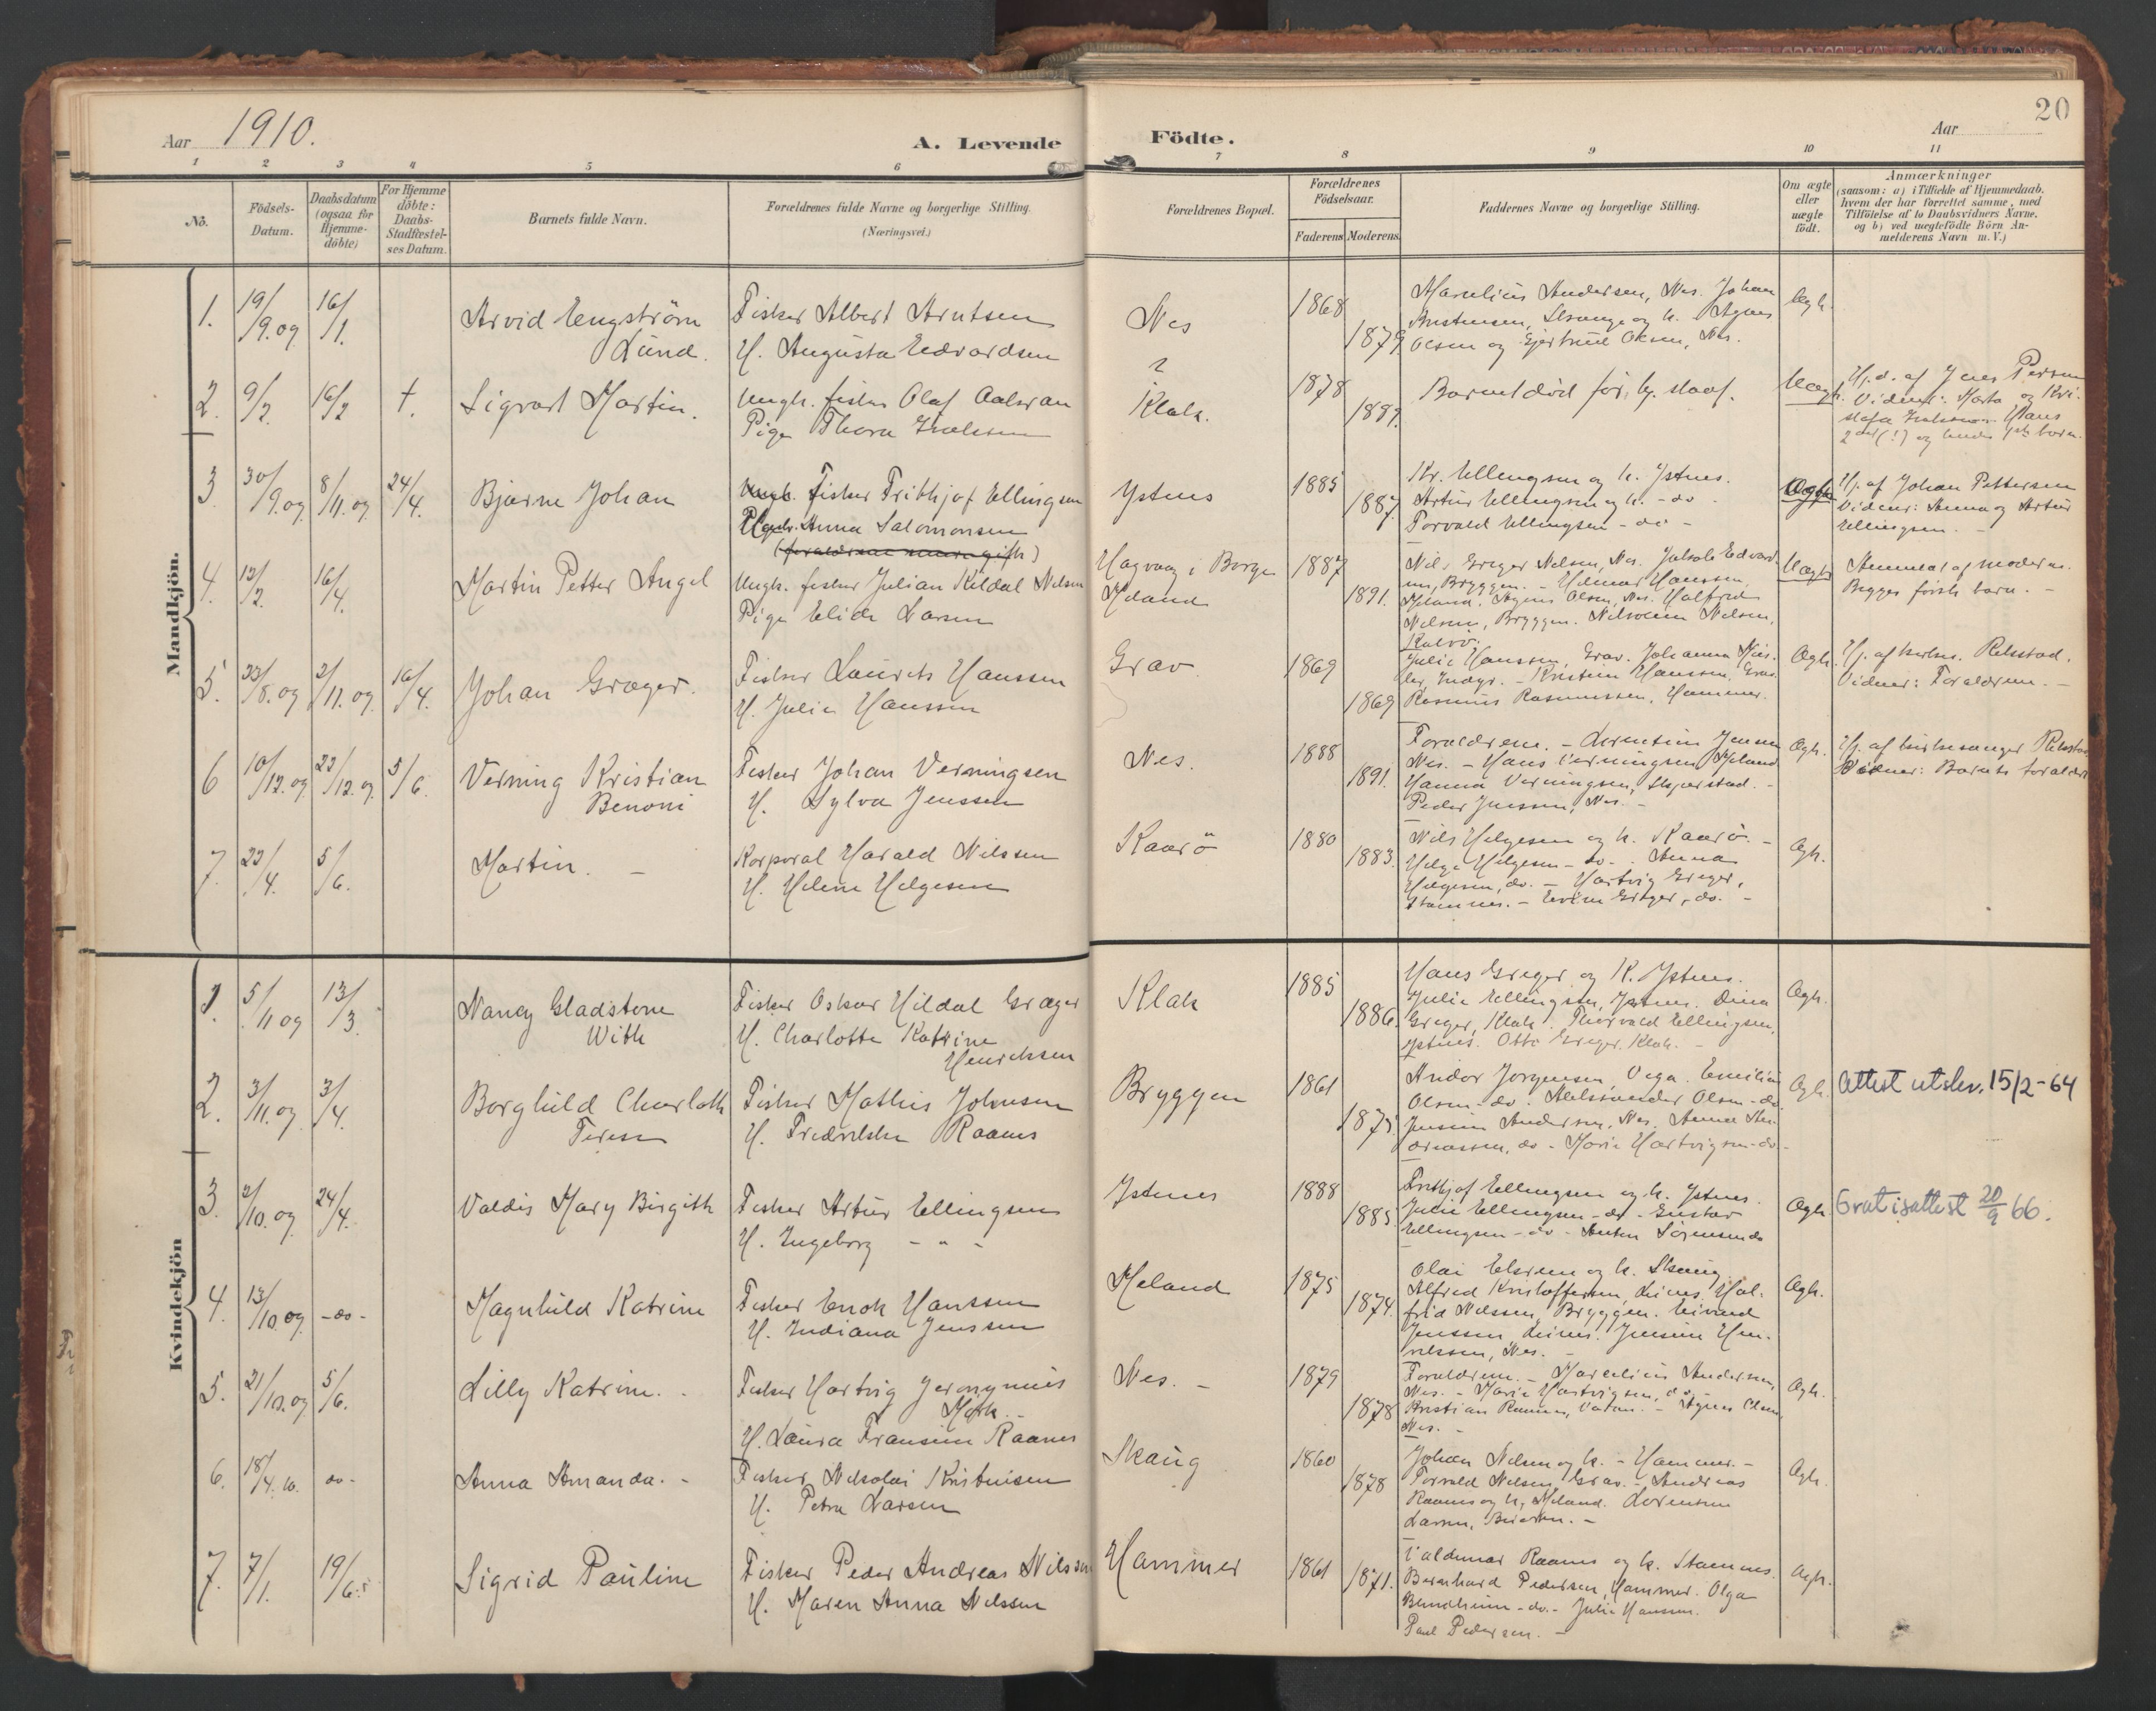 Aar 1910.
A. Levende
Födte.
Aar
20
1 2 3 4 5 6 7 8 9 10 11
No.
Födsels-
Datum.
Daabsdatum
(ogsaa for
Hjemme-
döbte)
For Hjemme
döbte:
Daabs-
Stadfæstel-
ses Datum.
Barnets fulde Navn.
Forældrenes fulde Navne og borgerlige Stilling.
(Næringsvei.)
Forældrenes Bopæl.
Forældrenes
Födselsaar.
Faderens Moderens
Faddernes Navne og borgerlige Stilling.
Om ægte
eller
uægte
födt.
Anmærkninger
(saasom: a) i Tilfælde af Hjemmedaab.
hvem der har forrettet samme, med
Tilföielse af to Daabsvidners Navne.
og b) ved uægtefödte Börn An-
melderens Navn m. V.)
Mandkjön.
1. 19/9.09 16/1. Arvid Engström
Lund.
Fisker Albert Arntsen
H. Augusta Edvardsen
Nes
1868
1879
Marselius Andersen, Nes. Johan
og h. Agnes
Olsen og Gjertrud Olsen, Nes.
Ægt.
2. 9/2. 16/2 +. Sigvart Martin.
Ungk. fisker Olaf
Pige Thora
?
Klak.
1878
1889.
Barnet död før
Uægt.
Hj.d. af Jens
Vidner: Marta og Kri-
Hans
2det (!) og hendes 1ste barn.
3 30/9.09 8/11.09 24/4. Bjarne Johan
Ungk. Fisker Frithjof Ellingsen
Anna Salomonsen
Ystnes
1885
1887.
Kr. Ellingsen og h. Ystnes.
Artur Ellingsen og h. - do -
Torvald Ellingsen - do -
Ægte
Hj. af Johan Pettersen
Vidner: Anna og Artur
Ellingsen. -
4. 13/2. 16/4. Martin Petter Angel
Ungk. fisker Julian Kildal Nilsen
Pige Elida Larsen
Hagvaag i Borge
Meland
1887
1891.
Nils Greger Nilsen, Nes. Jakob Edvard-
sen, Bryggen. - Hilmar Hanssen,
Meland. Agnes Olsen, Nes. Halfrid
Nilsen, Bryggen. Nilsen,
Kalvö.
Uægte
Anmeldt af moderen.
Begges første barn. -
5. 23/8.09 2/11.09 16/4. Johan Græger.
Fisker Laurits Hanssen
H. Julie Hanssen
Grav
1869
1869
Julie Hanssen, Grav. Johanna
- Kristine Hanssen, Grav.
Rasmus Rasmussen, Hammer.
Ægt.
Hj. af kirkes. Rekstad.
Vidner: Forældrene. -
6 10/12.09 22/12.09 5/6. Verning Kristian
Benoni
Fisker Johan Verningsen
H. Sylva Jenssen
Nes.
1888
1891.
Forældrene. - Lorentine Jensen
Nes. - Hans Verningsen, Meland
Hanna Verningsen, Skjerstad. -
Peder Jenssen, Nes. -
Ægt.
Hj. af kirkesanger Rekstad
Vidner: Barnets forældre
7. 23/4. 5/6. Martin. -
Korporal Harald Nilssen
H. Helene Helgesen
Kaarö
1880
1883.
Nils Helgesen og h. Kaarö. -
Helge Helgesen - do - Anna
Helgesen, do. - Hartvig Greger,
Stamnes. - Greger, do. -
Ægt.
Kvindekjön
1. 5/11 09 13/3. Nancy Gladstone
With
Fisker Oskar Hildal Græger
H. Charlotte Katrine
Henrikssen
Klak
1885
1886.
Hans Greger og K. Ystnes.
Julie Ellingsen, Ystnes. Dina
Greger, Klak. Thorvald Ellingsen,
Ystnes. Otto Greger. Klak. -
Ægt.
2. 3/11.09 3/4. Borghild Charlotte
Terese
Fisker Mathis Johnsen
H. Fredrikke Raanes
Bryggen
1861
1875
Andor Jorgensen, Vega. Emilie
Olsen - do - Aleksander Olsen - do
Jensine Andersen, Nes. Anna An-
dreassen, do - Marie Hartvigsen - do -
Ægt.
Attest utskr. 15/2-64
3. 2/10.09 24/4. Valdis Mary Birgith
Fisker Artur Ellingsen
H. Ingeborg - " -
Ystnes
1888
1885
Frithjof Ellingsen og h. Ystnes.
Julie Ellingsen - do - Gustav
Ellingsen - do - Anton Sörensen do
Ægt.
Gratisattest 20/9 66.
4. 13/10.09 - do - Magnhild Katrine
Fisker Enok Hanssen
H. Indiana Jenssen
Meland
1875
1874.
Olai og h. Skaug.
Alfred Kristoffersen, Leines. Hal-
frid Nilssen, Bryggen. Eivind
Jenssen, Leines. Jensine Hen-
rikssen, Nes. -
Ægt.
5. 21/10.09 5/6. Lilly Katrine. -
Fisker Hartvig Jeronymus
Mörk. -
H. Laura Fransine Raanes
Nes. -
1879
1878
Forældrene. - Marcelius Andersen,
Nes. - Marie Hartvigsen, do -
Kristian Raanes, - Agnes Olsen,
Nes. -
Ægt.
6. 18/4.10. do - Anna Amanda. -
Fisker Nikolai Kristensen
H. Petra Larsen
Skaug
1860
1878
Johan Nilsen og h. - Hammer. -
Torvald Nilsen, Grav. - Andreas
Raanes og h, Meland. Lorentine
Larsen, -
Ægt.
7. 7/1. 19/6. Sigrid Pauline
Fisker Peder Andreas Nilssen
H. Maren Anna Nilssen
Hammer
1861
1871.
Valdemar Raanes og h. Stamnes.
Bernhard Pedersen, Hammer. Olga
- do. - Julie Hanssen.
Paul Pedersen. -
Ægt.